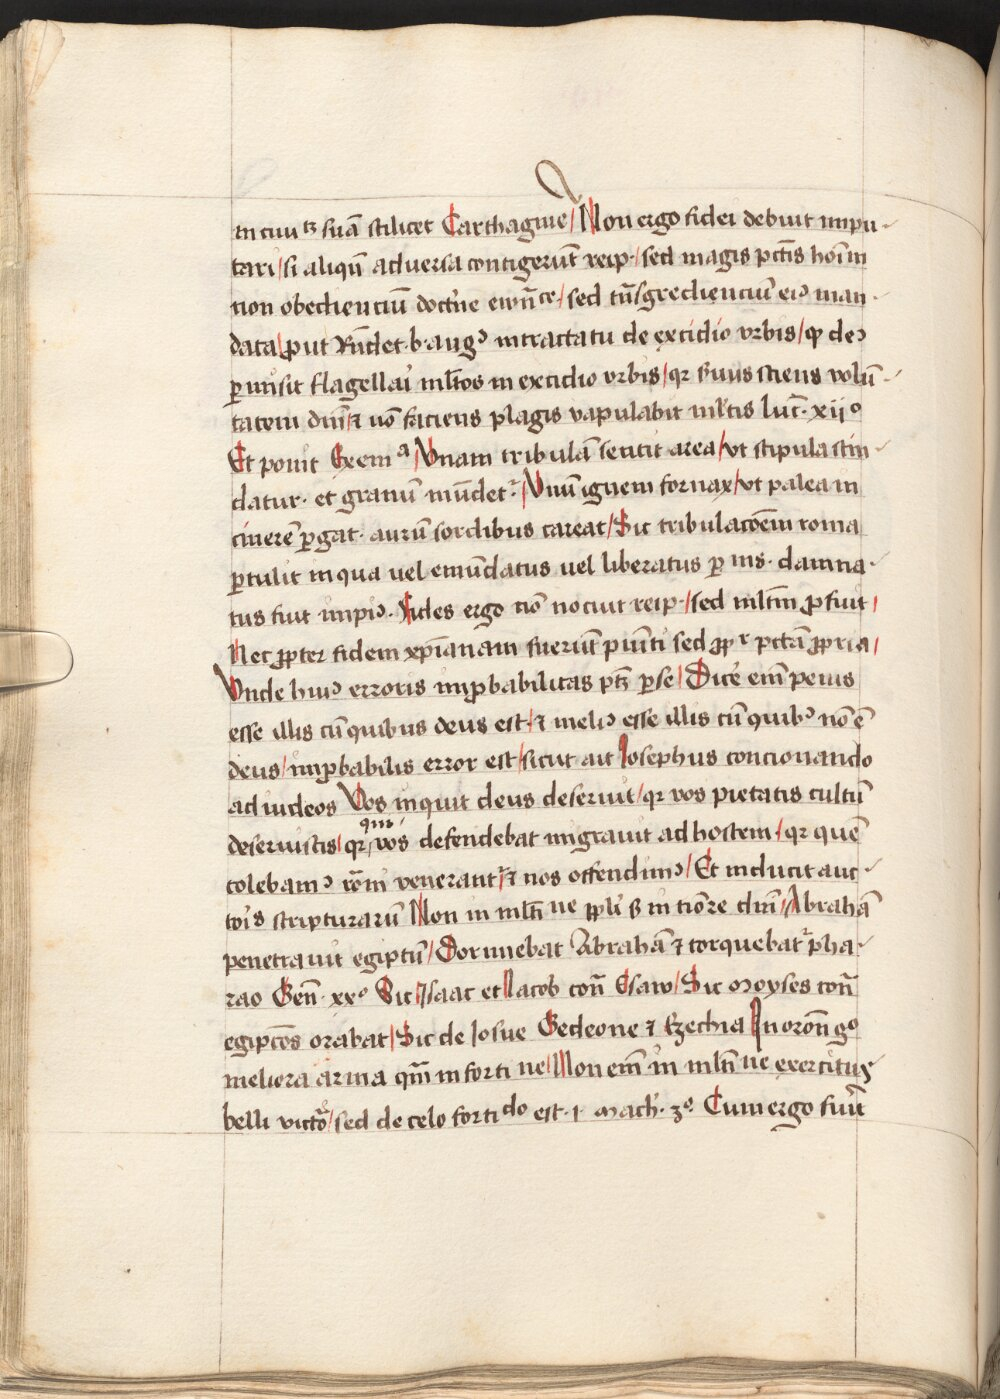 in ciuitꝫ suā scilicet Carthagine / Non ergo fidei debuit impu-
tari / si aliqn̄ aduersa contigerūt reip· / sed magis pctīs hoīm
non obedienciū doctͥne ewn̄ce· / sed tn̄sgrediencium eiꝰ man-
data / ꝓut Rn̄det· b· augꝰ in tractatu de excidio vrbis / qp deꝰ
ꝑmisit flagellari ml̄tos in excidio vrbis / qr suus sciens volū-
tatem dn̄i ⁊ nō faciens plagis vapulabit ml̄tis luc̄· xijᵒ
Et ponit Exemᵃ / Vnam tribulā sentit area / vt stipula scin-
datur· et granū mūdetᷣ· / Vnū ignem fornax / vt palea in
cinerē ꝑgat· aurū sordibus careat / Sic tribulacōem roma
ꝑtulit in qua uel emūdatus uel liberatus ꝑ ins· damna-
tus fuit impiꝰ· Fides ergo nō nocuit reip· / sed ml̄tm ꝓfuit /
Nec ꝓpter fidem xp̄ianam fuerūt puniti sed ꝓpʳ pctā ꝓpria /
Vnde huiꝰ erroris imꝓbabilitas ptꝫ ꝑ se / Dicē em̄ peius
esse illis cū quibus deus est· ⁊ meliꝰ esse illis cū quibꝰ nō ē
deus / imꝓbabilis error est / sicut ait Josephus concionando
ad iudeos Vos inquit deus deseruit / qr vos pietatis cultū
deseruistis / qr qui vos defendebat migrauit ad hostem· / qr quē
colebamꝰ rōm̄ venerantᷣ / ⁊ nos offendimꝰ / Et inducit auc-
tōis scripturarū Non in ml̄ti ne ppl̄i ß in tiōre dn̄i / Abrahā
penetrauit egiptū / Dormiebat Abrahā ⁊ torquebatᷣ pha-
rao Gen̄· xxᵒ Sic Isaac et Jacob con̄ Esaw / Sic Moyses con̄
egipcōs orabat / Sic de Josue Gedeone ⁊ Ezechia In oron̄ gᵒ
meliora arma qm̄ in forti ne / Non em̄ in ml̄ti ne exercitus
belli victōᷣ / sed de celo fortiᵈᵒ est· 1· Mach· 3ᵒ· Cum ergo fuūt